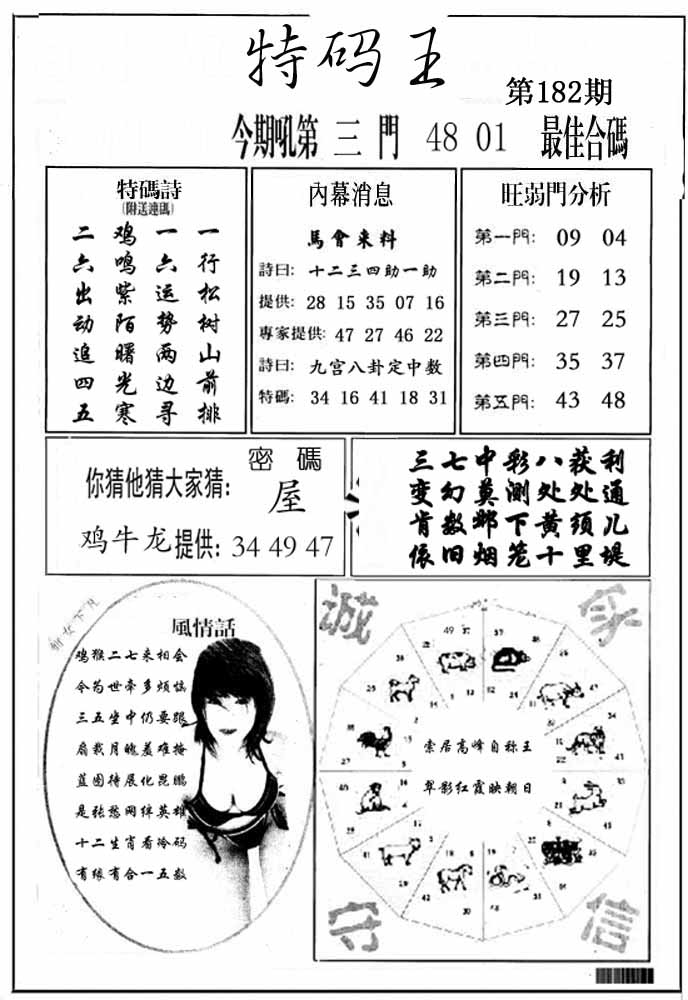 特码王
第182期
今期吼第 三 門 48 01 最佳合碼
特碼詩
(附送連碼)
一行松树山前排
一六运势两边寻
鸡鸣紫陌曙光寒
二六出动追四五
內幕消息
馬會来料
詩曰: 十二三四助一助
提供: 28 15 35 07 16
專家提供: 47 27 46 22
詩曰: 九宫八卦定中数
特碼: 34 16 41 18 31
旺弱門分析
第一門: 09 04
第二門: 19 13
第三門: 27 25
第四門: 35 37
第五門: 43 48
密碼
你猜他猜大家猜: 屋
鸡牛龙提供: 34 49 47
三七中彩八获利
变幻莫测处处通
肯数邺下黄须儿
依旧烟笼十里堤
風情話
鸡猴二七来相会
令为世牵多烦恼
三五坐中仍要跟
扇裁月魄羞难掩
蓝图待展化昆鹏
是张愁网绊英雄
十二生肖看冷码
有缘有合一五数
诚
守
信
索居高峰自称王
翠影红霞映朝日